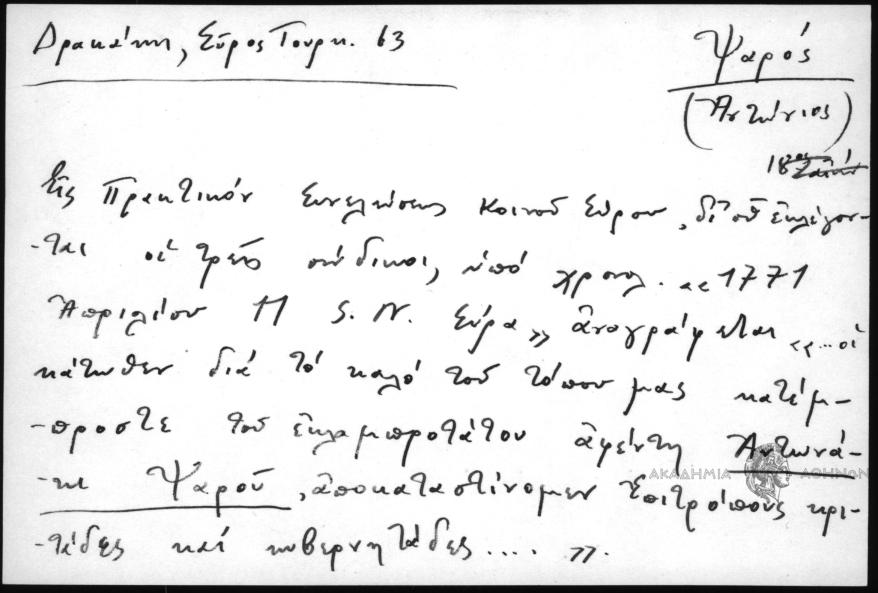 Δρακάκη, Σῦρος Τουρκ. 63
Ψαρός
(Ἀντώνιος)
18ος
Εἰς Πρακτικόν Συνελεύσεως Κοινοῦ Σύρου, δι' οὗ ἐκλέγον-
-ται οἱ τρεῖς σύνδικοι, ὑπό χρονολ. «1771
Ἀπριλίου 11 S. N. Σύρα» ἀναγράφεται «...οἱ
κάτωθεν διά τό καλό τοῦ τόπου μας κατέμ-
-προστε τοῦ ἐκλαμπροτάτου ἀφέντη Ἀντωνά-
-κι Ψαροῦ, ἀποκαταστίνομεν Ἐπιτρόπους κρι-
-τάδες καί κυβερνητάδες .... ».
ΑΚΑΔΗΜΙΑ ΑΘΗΝΩΝ